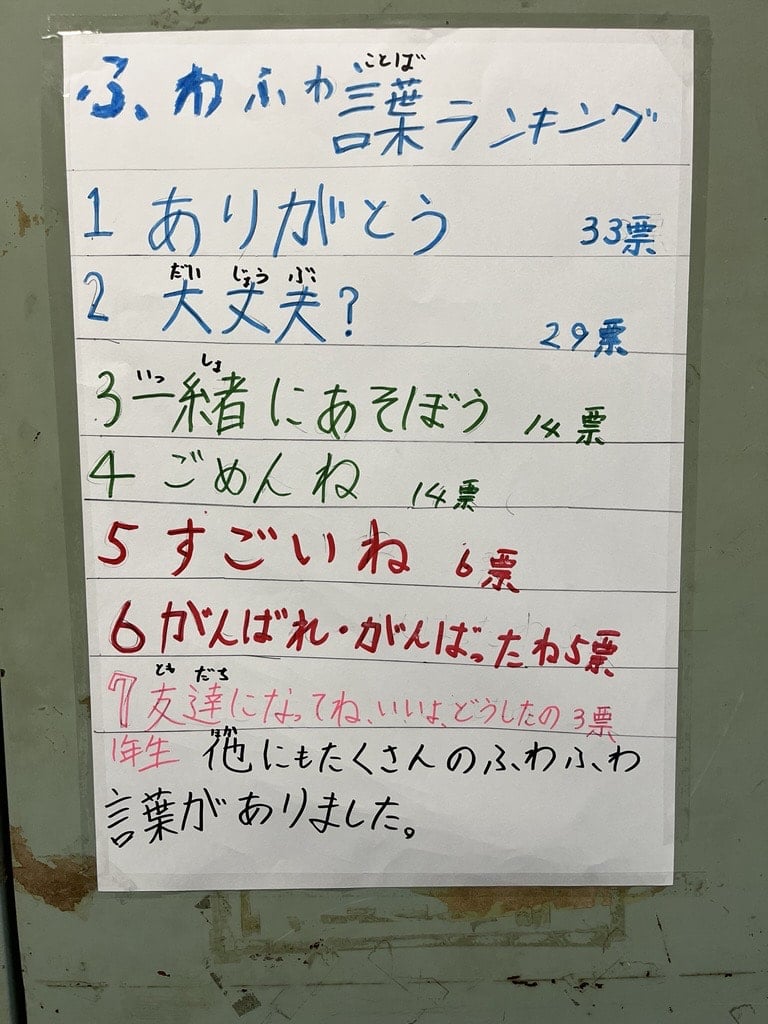 ふわふわ言葉ランキング
1 ありがとう 33票
2 大丈夫? 29票
3 一緒にあそぼう 14票
4 ごめんね 14票
5 すごいね 6票
6 がんばれ・がんばったね 5票
7 友達になってね、いいよ、どうしたの 3票
1年生 他にもたくさんのふわふわ
言葉がありました。